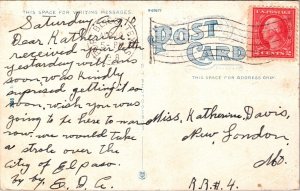 THIS SPACE FOR WRITING MESSAGES
POST CARD
THIS SPACE FOR ADDRESS ONLY
Saturday, Aug, 10
Dear Katherine
received your letter
yesterday will ans
soon. Was kindly
suprised getting it so
soon, wish you was
going to be here to mar
row. we would take
a strole over the
City of Elpaso.
by by. E. D. A.
2 CENTS 2
Miss, Katherine, Davis,
New, London
Mo.
R.R.# 4.